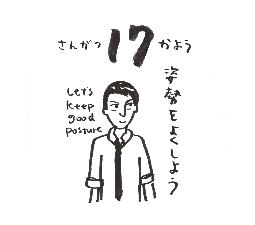 さんがつ 17 かよう
Let's
keep
good
posture
姿勢をよくしよう